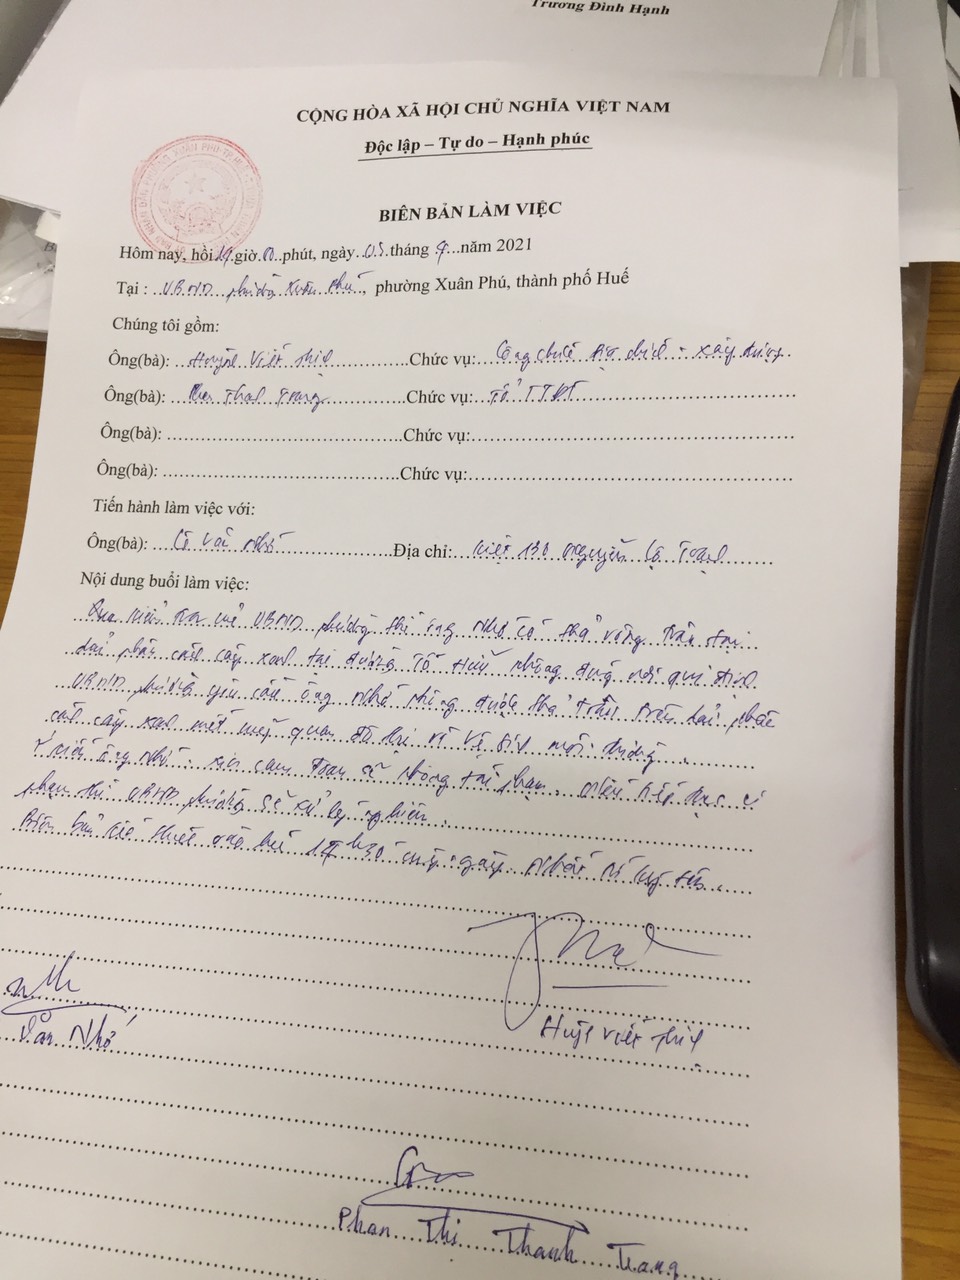 Trương Đình Hạnh
CỘNG HÒA XÃ HỘI CHỦ NGHĨA VIỆT NAM
Độc lập – Tự do – Hạnh phúc
BIÊN BẢN LÀM VIỆC
Hôm nay, hồi giờ 00 phút, ngày 03 tháng 9 năm 2021
Tại : UBND phường Xuân Phú, phường Xuân Phú, thành phố Huế
Chúng tôi gồm:
Ông(bà): Huỳnh Viết Chức vụ: Công chức địa chính - xây dựng
Ông(bà): Thanh Trang Chức vụ: Tổ TTĐT
Ông(bà): Chức vụ:
Ông(bà): Chức vụ:
Tiến hành làm việc với:
Ông(bà): Văn Nhớ Địa chỉ: kiệt 130 Nguyễn Lộ Trạch
Nội dung buổi làm việc:
Qua kiểm tra UBND phường thì ông Nhớ có thả trâu tại
dải phân cách cây xanh tại đường Tố Hữu không đúng nơi qui định
UBND phường yêu cầu ông Nhớ không được thả trâu trên dải phân
cách cây xanh mất mỹ quan đô thị và vệ sinh môi trường.
Ý kiến ông Nhớ: xin cam đoan sẽ không tái phạm. Nếu tiếp tục vi
phạm thì UBND phường sẽ xử lý nghiêm.
Biên bản kết thúc vào hồi cùng ngày, nhất trí ký tên.
Văn Nhớ
Huỳnh Viết
Phan Thị Thanh Trang